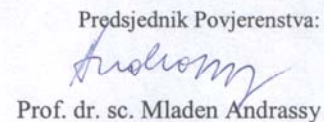 Predsjednik Povjerenstva:
Andrassy
Prof. dr. sc. Mladen Andrassy